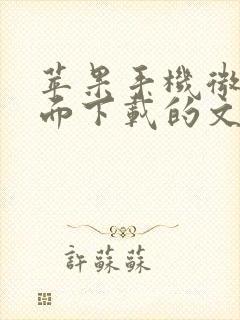 苹果手機微
而下載的文
許蘇蘇